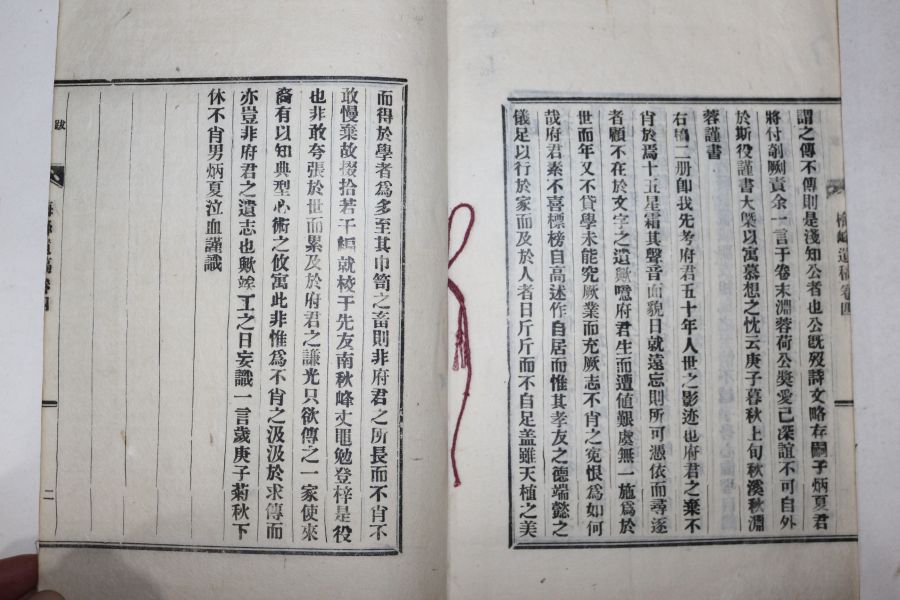 謂之傳不傳則是淺知公者也公旣歿詩文略存嗣子炳夏君
將付剞劂責余一言于卷末淵蓉荷公獎愛已深誼不可自外
於斯役謹書大槩以寓慕想之忱云庚子暮秋上旬秋溪秋淵
蓉謹書
右二册卽我先考府君五十年人世之影迹也府君之棄不
肖於焉十五星霜其聲音面貌日就遠忘則所可憑依而尋逐
者顧不在於文字之遺歟噫府君生而遭値艱虞無一施爲於
世而年又不貸學未能究厥業而充厥志不肖之寃恨爲如何
哉府君素不喜標榜自高述作自居而惟其孝友之德端懿之
儀足以行於家而及於人者日斤斤而不自足盖雖天植之美
而得於學者爲多至其巾笥之畜則非府君之所長而不肖不
敢慢棄故掇拾若干編就校于先友南秋峰丈黽勉登梓是役
也非敢夸張於世而累及於府君之謙光只欲傳之一家使來
裔有以知典型心術之攸寓此非惟爲不肖之汲汲於求傳而
亦豈非府君之遺志也歟竣工之日妄識一言歲庚子菊秋下
休不肖男炳夏泣血謹識
跋
遺稿卷四
二